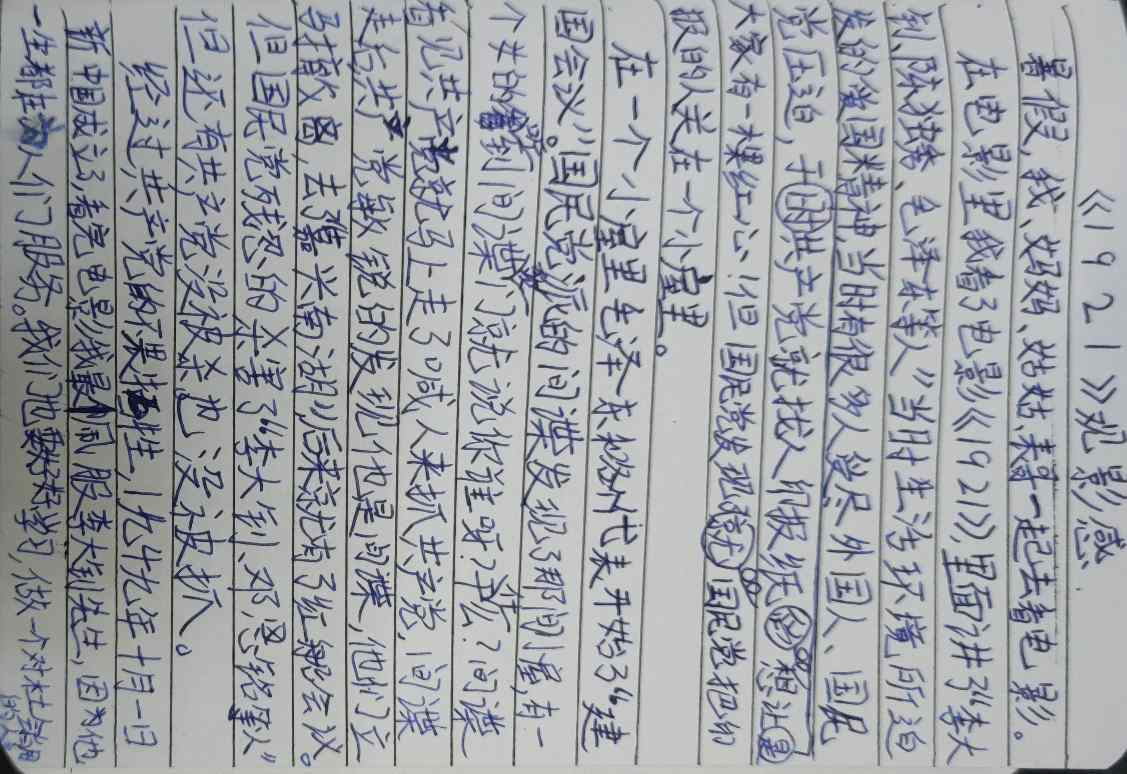 《1921》观影感
暑假,我、妈妈、姑姑、哥一起去看电影。
在电影里我看了电影《1921》,里面讲了“李大
钊、陈独秀、毛泽东等人”当时生活环境所迫
发的爱国精神,当时有很多人受尽外国人、国民
党压迫,于的共产党就找人印报纸 想让
大家有一棵红心!但国民党发现 国民党把印
报的人关在一个小室里。
在一个小室里毛泽东和各代表开始了“建
国会议”。国民党派的间谍发现了那间室,有一
个 的 到间谍 就说你谁呀?准么?间谍
看见共产党 马上走了喊人来抓共产党,间谍
走后共产党敏锐的发现他也是间谍,他们立
了 ,去嘉兴南湖,后来就有了红船会议。
但国民党残忍的杀害了“李大钊、邓恩铭等人”
但还有共产党没被杀也没被抓。
经过共产党的不畏牺牲,一九四九年十月一日
新中国成立,看完电影我最佩服李大钊先生,因为他
一生都在为人们服务。我们也要好好学习,做一个对社会有用